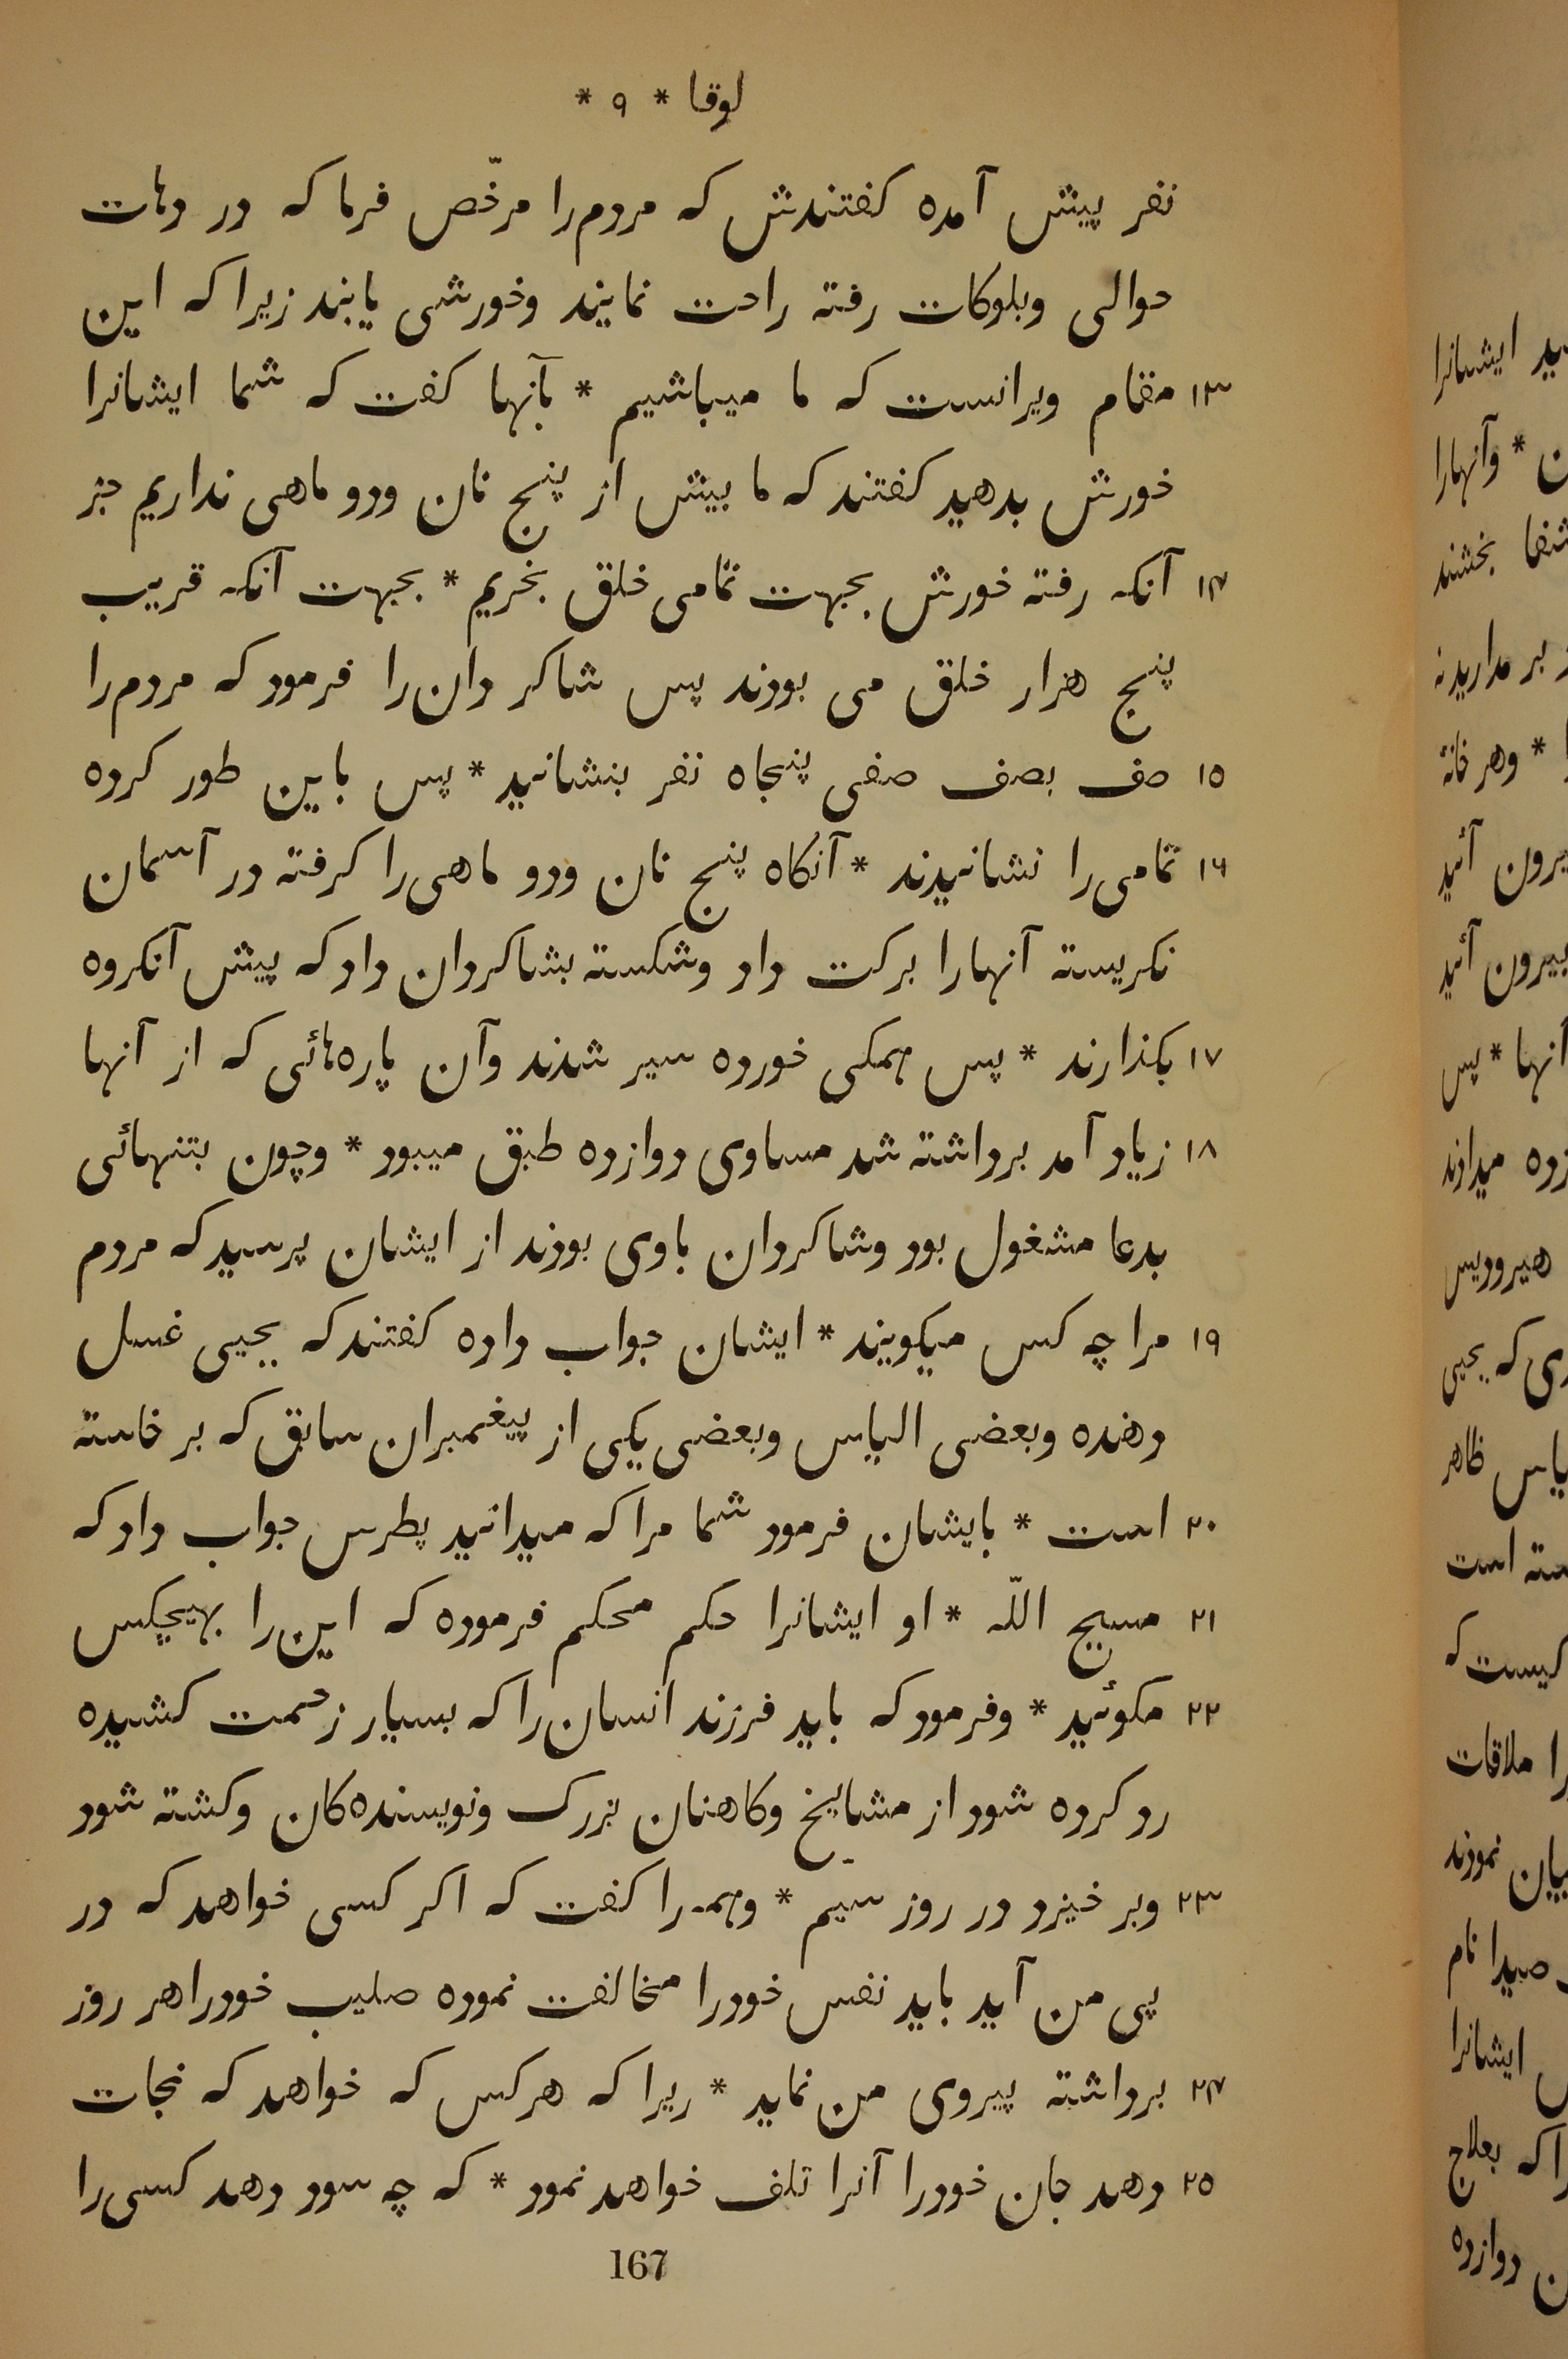 لوقا * ۹ *
نفر پیش آمده کفتندش که مردم‌را مرخّص فرما که در دهات
حوالی وبلوکات رفته راحت نمایند وخورشی یابند زیرا که این
۱۳ مقام ویرانست که ما میباشیم * بآنها کفت که شما ایشانرا
خورش بدهید کفتند که ما بیش از پنج نان ودو ماهی نداریم جز
۱۴ آنکه رفته خورش بجهت تمامی خلق بخریم * بجهت آنکه قریب
پنج هزار خلق می بودند پس شاکر دان‌را فرمود که مردم‌را
۱۵ صف بصف صفی پنجاه نفر بنشانید * پس باین طور کرده
۱۶ تمامی‌را نشانیدند * آنکاه پنج نان ودو ماهی‌را کرفته در آسمان
نکریسته آنهارا برکت داد وشکسته بشاکردان داد که پیش آنکروه
۱۷ بکذارند * پس همکی خورده سیر شدند وآن پاره‌هائی که از آنها
۱۸ زیاد آمد برداشته شد مساوی دوازده طبق میبود * وچون بتنهائی
بدعا مشغول بود وشاکردان باوی بودند از ایشان پرسید که مردم
۱۹ مرا چه کس میکویند * ایشان جواب داده کفتند که یحیی غسل
دهنده وبعضی الیاس وبعضی یکی از پیغمبران سابق که بر خاسته
۲۰ است * بایشان فرمود شما مرا که میدانید پطرس جواب داد که
۲۱ مسیح اللّه * او ایشانرا حکم محکم فرموده که این‌را بهیچکس
۲۲ مکوئید * وفرمود که باید فرزند انسان‌را که بسیار زحمت کشیده
رد کرده شود از مشایخ وکاهنان بزرک ونویسنده‌کان وکشته شود
۲۳ وبر خیزد در روز سیم * وهمه‌را کفت که اکر کسی خواهد که در
پی من آید باید نفس خودرا مخالفت نموده صلیب خودرا هر روز
۲۴ برداشته پیروی من نماید * ریرا که هرکس که خواهد که نجات
۲۵ دهد جان خودرا آنرا تلف خواهد نمود * که چه سود دهد کسی‌را
167
ایشانرا
* وآنهارا
بخشند
بر مدارید نه
* وهر خانهٔ
آئید
بیرون آئید
آنها * پس
هیرودیس
که یحیی
ظاهر
است
کیست که
ملاقات
نمودند
صیدا نام
ایشانرا
بعلاج
دوازده